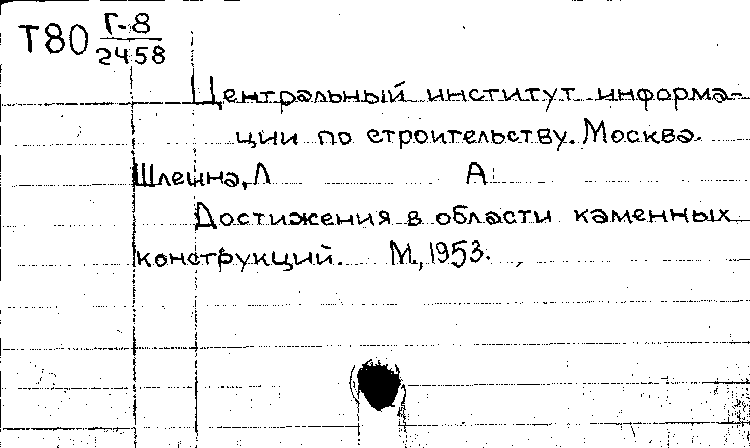 Т80 Г-8
2458
Центральный институт информа-
ции по строительству. Москва.
Шлеина, Л А
Достижения в области каменных
конструкций. М., 1953.